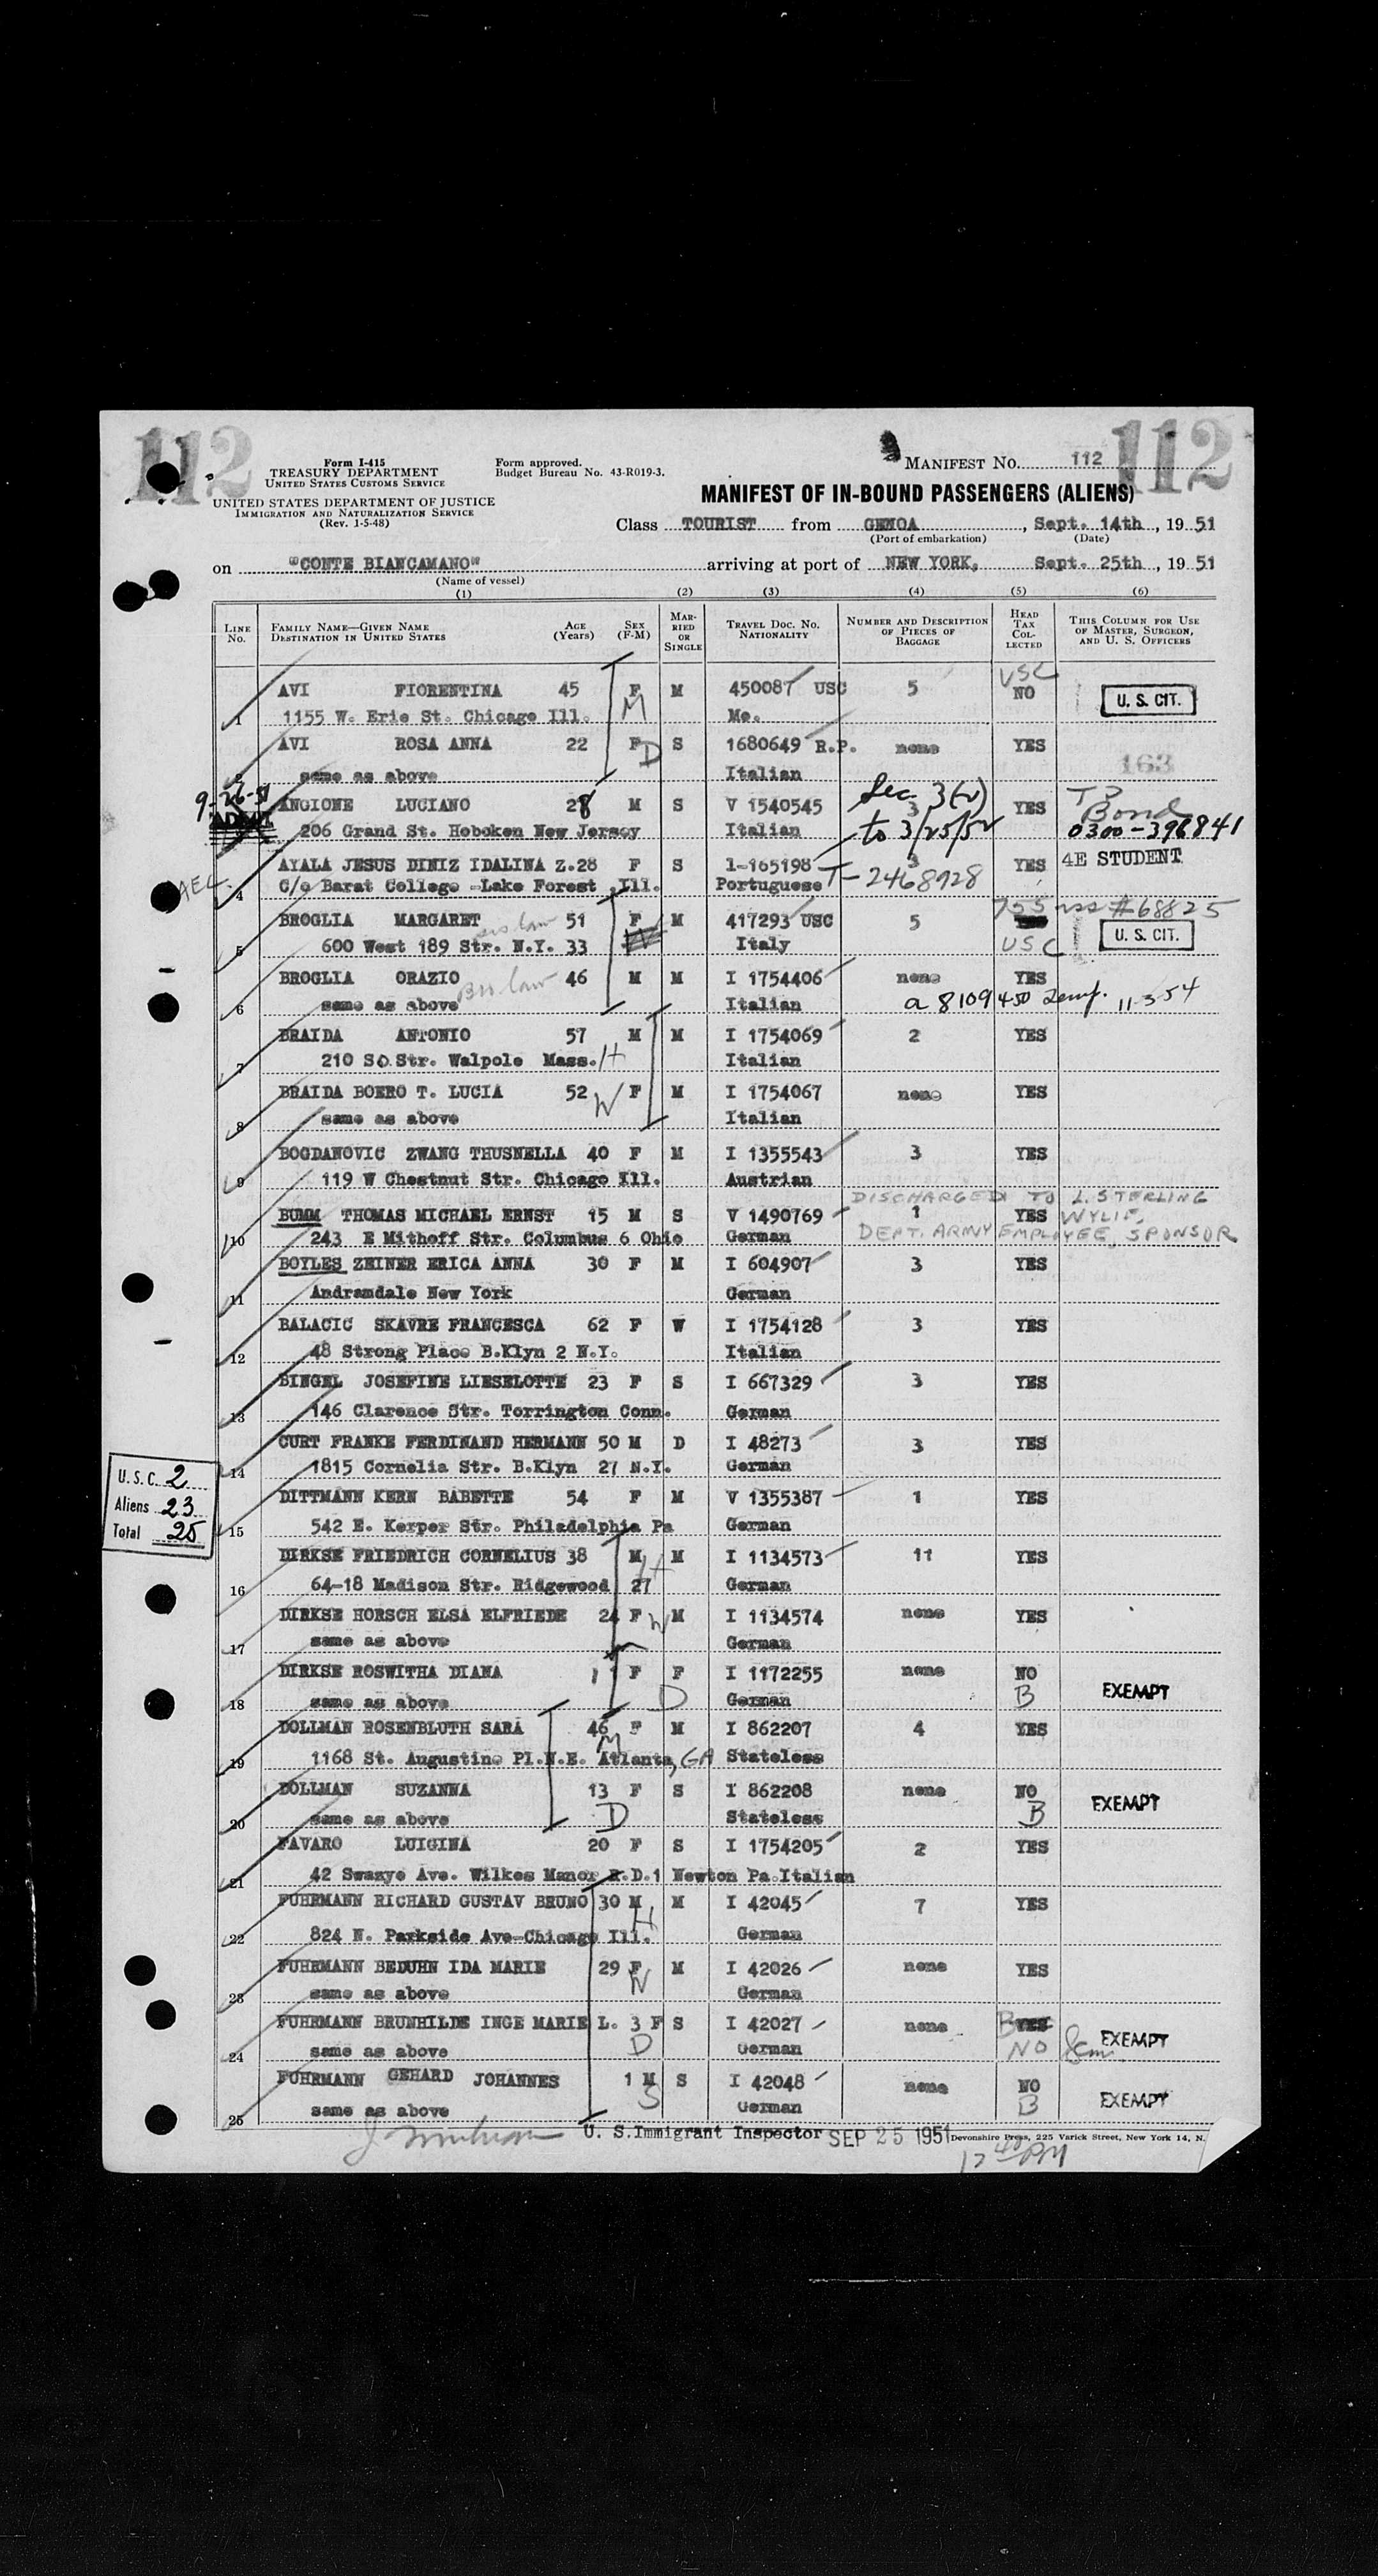 112
112
Form I-415
TREASURY DEPARTMENT
UNITED STATES CUSTOMS SERVICE
Form approved.
Budget Bureau No. 43-R019-3.
MANIFEST No. 112
UNITED STATES DEPARTMENT OF JUSTICE
IMMIGRATION AND NATURALIZATION SERVICE
(Rev. 1-5-48)
MANIFEST OF IN-BOUND PASSENGERS (ALIENS)
Class TOURIST from GENOA, Sept. 14th, 19 51
(Port of embarkation) (Date)
on "CONTE BIANCAMANO" arriving at port of NEW YORK, Sept. 25th, 19 51
(Name of vessel)
(1) (2) (3) (4) (5) (6)
LINE No. FAMILY NAME—GIVEN NAME DESTINATION IN UNITED STATES AGE (Years) SEX (F-M) MARRIED OR SINGLE TRAVEL DOC. NO. NATIONALITY NUMBER AND DESCRIPTION OF PIECES OF BAGGAGE HEAD TAX COLLECTED THIS COLUMN FOR USE OF MASTER, SURGEON, AND U. S. OFFICERS
USC
AVI FIORENTINA 45 F M 450087 USC 5 NO U. S. CIT.
1 1155 W. Erie St. Chicago Ill. M Me.
AVI ROSA ANNA 22 F D S 1680649 R.P. none YES
2 same as above Italian 163
9-26-51 ANGIONE LUCIANO 28 M S V 1540545 Sec. 3(2) 3 YES Bond
206 Grand St. Hoboken New Jersey Italian to 3/25/52 0300-396841
AYALA JESUS DINIZ IDALINA Z. 28 F S 1-165198 3 YES 4E STUDENT
4 C/o Barat College -Lake Forest .Ill. Portuguese T-2468928
BROGLIA MARGARET 51 F M 417293 USC 5 #68825
5 600 West 189 Str. N.Y. 33 Italy USC U. S. CIT.
BROGLIA ORAZIO 46 M M I 1754406 none YES
6 same as above Bro law Italian a 8109450 11-3-54
BRAIDA ANTONIO 57 M M I 1754069 2 YES
7 210 SO.Str. Walpole Mass. H Italian
BRAIDA BOERO T. LUCIA 52 W F M I 1754067 none YES
8 same as above Italian
BOGDANOVIC ZWANG THUSNELLA 40 F M I 1355543 3 YES
9 119 W Chestnut Str. Chicago Ill. Austrian
DISCHARGED TO L. STERLING
BUMM THOMAS MICHAEL ERNST 15 M S V 1490769 1 YES WYLIE,
10 243 E Mithoff Str. Columbus 6 Ohio German DEPT. ARMY EMPLOYEE, SPONSOR
BOYLES ZEINER ERICA ANNA 30 F M I 604907 3 YES
11 Andramdale New York German
BALACIC SKAVRE FRANCESCA 62 F W I 1754128 3 YES
12 48 Strong Place B.Klyn 2 N.Y. Italian
BINGEL JOSEFINE LIESELOTTE 23 F S I 667329 3 YES
13 146 Clarence Str. Torrington Conn. German
CURT FRANKE FERDINAND HERMANN 50 M D I 48273 3 YES
14 1815 Cornelia Str. B.Klyn 27 N.Y. German
U.S.C. 2
Aliens 23
Total 25
DITTMANN KERN BABETTE 54 F M V 1355387 1 YES
15 542 E. Kerper Str. Philadelphia Pa German
DIRKSE FRIEDRICH CORNELIUS 38 M M I 1134573 11 YES
16 64-18 Madison Str. Ridgewood 27 H German
DIRKSE HORSCH ELSA ELFRIEDE 24 F W M I 1134574 none YES
17 same as above German
DIRKSE ROSWITHA DIANA 1 F F I 1172255 none NO
18 same as above D German B EXEMPT
DOLLMAN ROSENBLUTH SARA 46 F M I 862207 4 YES
19 1168 St. Augustine Pl.N.E. Atlanta, GA M Stateless
DOLLMAN SUZANNA 13 F S I 862208 none NO
20 same as above D Stateless B EXEMPT
FAVARO LUIGINA 20 F S I 1754205 2 YES
21 42 Swazye Ave. Wilkes Manor R.D.1 Newton Pa.Italian
FUHRMANN RICHARD GUSTAV BRUNO 30 M M I 42045 7 YES
22 824 N. Parkside Ave-Chicago Ill. H German
FUHRMANN BEDUHN IDA MARIE 29 F M I 42026 none YES
23 same as above W German
FUHRMANN BRUNHILDE INGE MARIE L. 3 F S I 42027 none B YES
24 same as above D German NO EXEMPT
FUHRMANN GEHARD JOHANNES 1 M S I 42048 none NO
25 same as above S German B EXEMPT
U. S.Immigrant Inspector SEP 25 1951 Devonshire Press, 225 Varick Street, New York 14, N.
12 40 PM